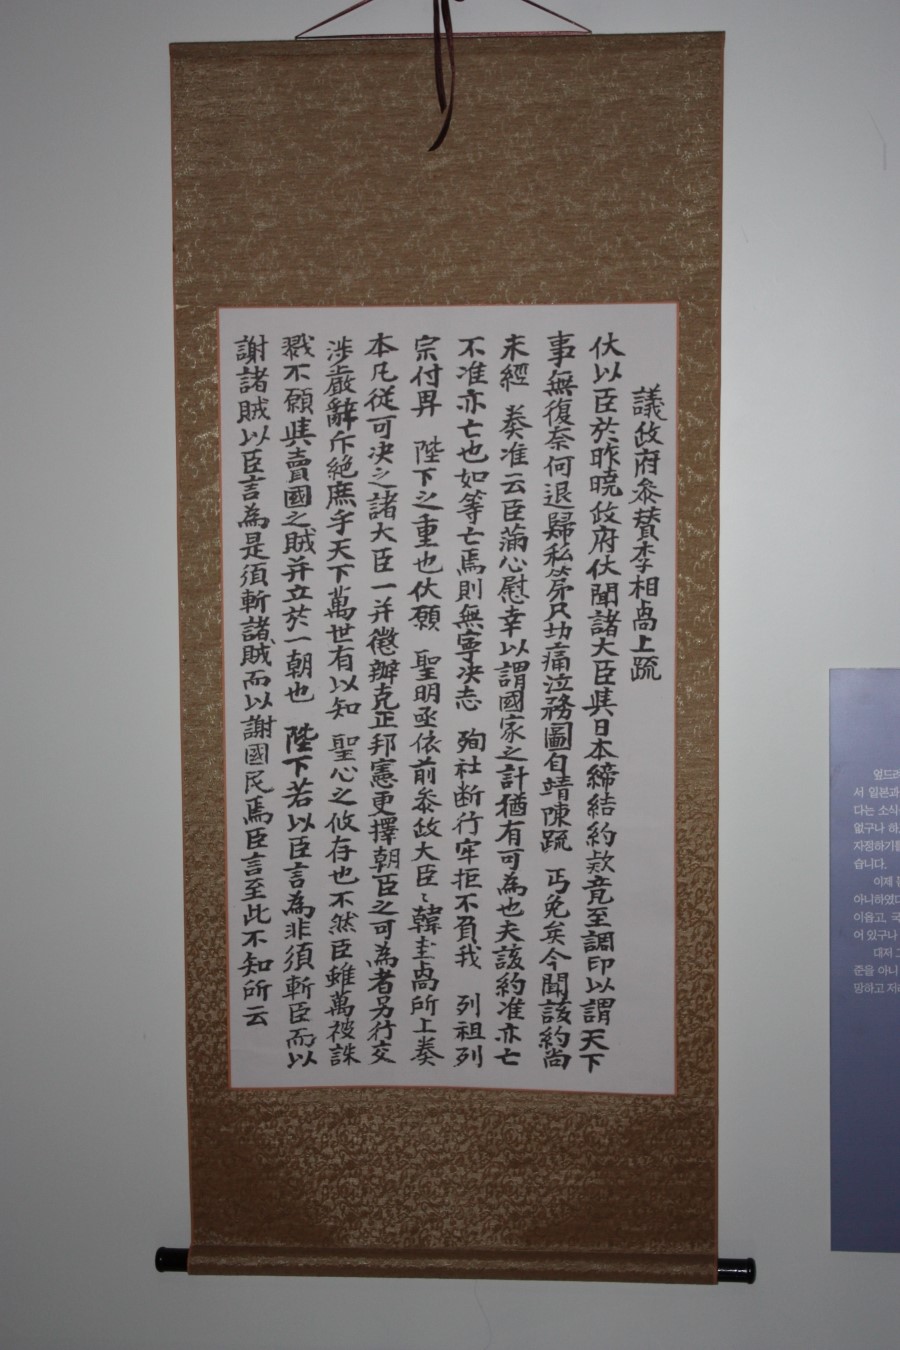 議政府參賛李相卨上疏
伏以臣於昨曉政府伏聞諸大臣與日本締結約款竟至調印以謂天下
事無復奈何退歸私第只切痛泣務圖自靖陳疏 丐免矣今聞該約尚
未經 奏准云臣滿心慰幸以謂國家之計猶有可為也夫該約准亦亡
不准亦亡也如等亡焉則無寧決志 殉社断行牢拒不負我 列祖列
宗付畀 陛下之重也伏願 聖明亟依前參政大臣〻韓圭卨所上奏
本凡從可决之諸大臣一并懲辦克正邦憲更擇朝臣之可為者另行交
渉嚴辭斥絶庶乎天下萬世有以知 聖心之攸存也不然臣雖萬被誅
戮不願與賣國之賊并立於一朝也 陛下若以臣言為非須斬臣而以
謝諸賊以臣言為是須斬諸賊而以謝國民焉臣言至此不知所云
엎드려
서 일본과
다는 소식
없구나 하
자정하기를
습니다.
이제 듣
아니하였다
이옵고, 국
어 있구나
대저 그
준을 아니
망하고 저